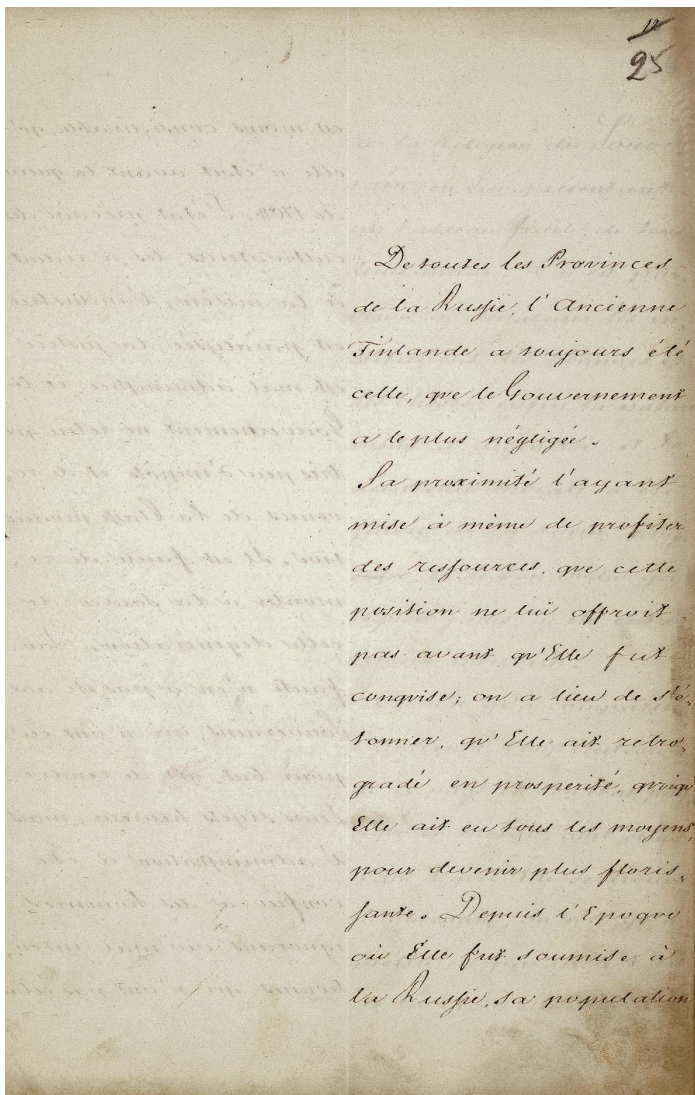 12
25
De toutes les Provinces
de la Russie, l'Ancienne
Finlande a toujours été
celle, que le Gouvernement
a le plus négligée.
Sa proximité l'ayant
mise à même de profiter
des ressources, que cette
position ne lui offroit
pas avant qu'Elle fut
conquise; on a lieu de s'é-
tonner, qu'Elle ait retro-
gradé en prosperité, quoiqu'
Elle ait eu tous les moyens
pour devenir plus floris-
sante. Depuis l'Epoque
où Elle fut soumise à
la Russie, sa population